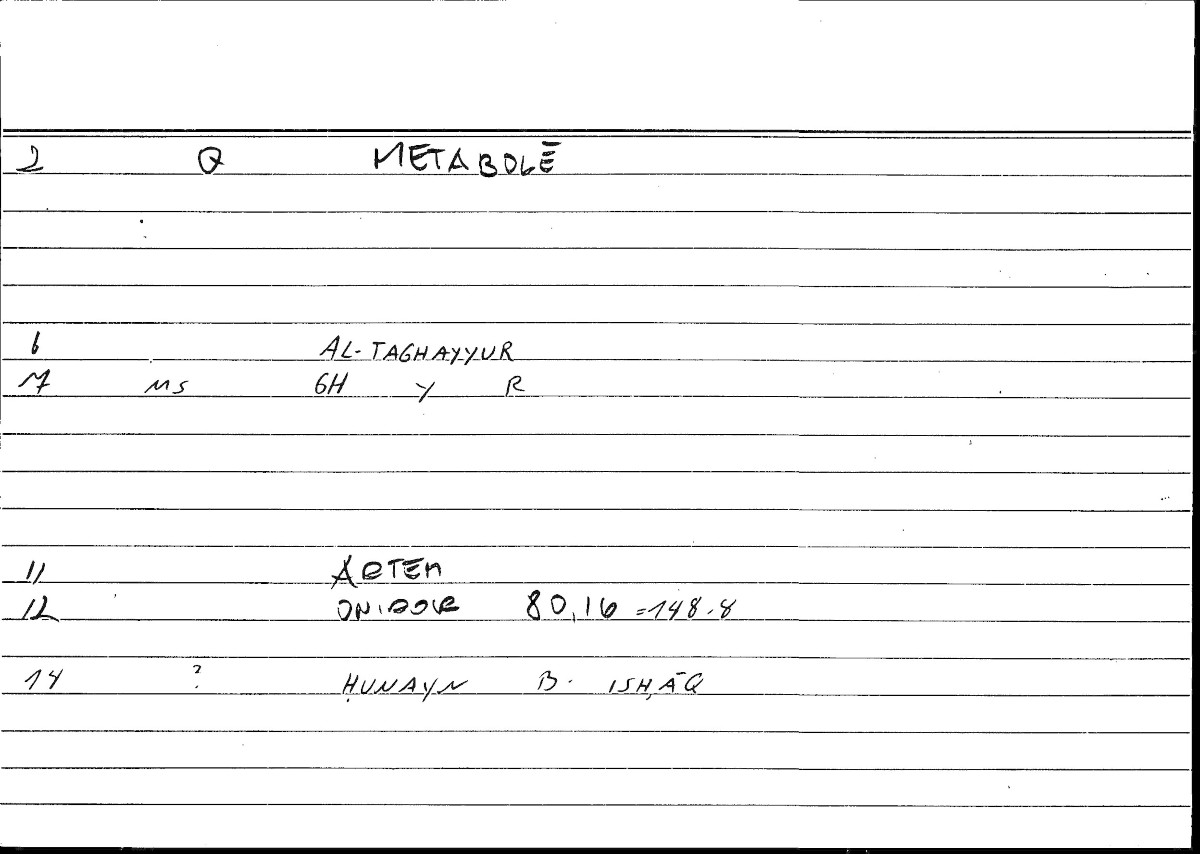 2 Q METABOLĒ
6 AL-TAGHAYYUR
7 MS GH Y R
11 ARTEM
12 ONIDOR 80,16 =148.8
14 ? ḤUNAYN B. ISḤĀQ